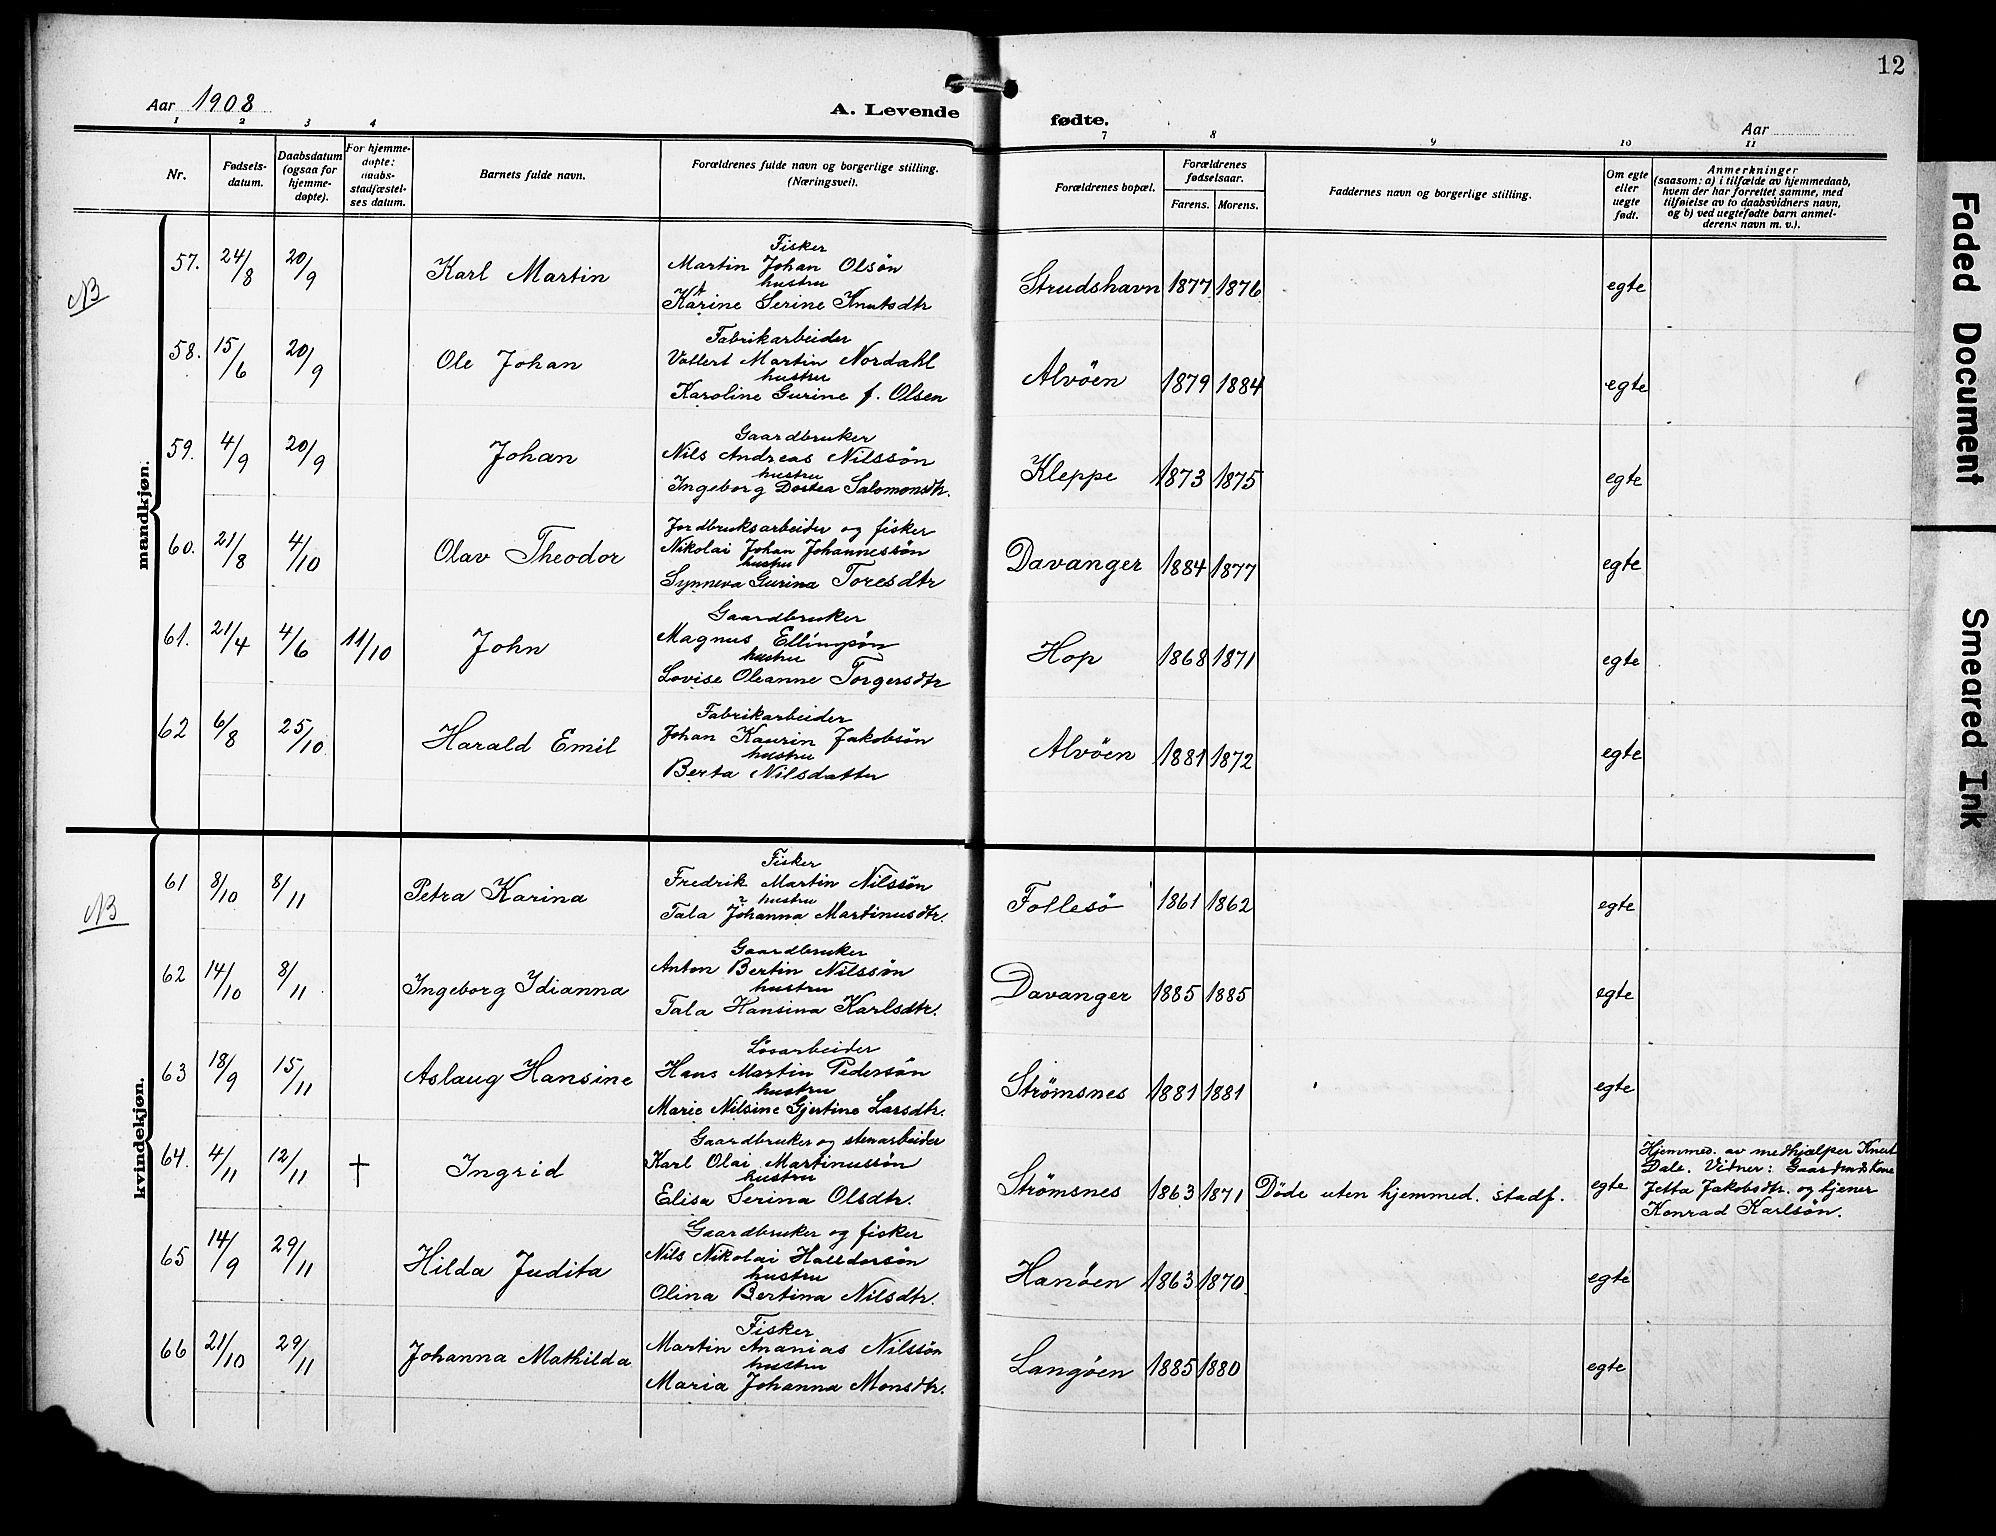 12
Aar 1908
A. Levende
fødte.
Aar
1 2 3 4
7 8 9 10 11
Nr.
Fødsels-
datum.
Daabsdatum
(ogsaa for
hjemme-
døpte).
For hjemme-
døpte:
daabs-
stadfæstel-
ses datum.
Barnets fulde navn.
Forældrenes fulde navn og borgerlige stilling.
(Næringsvei).
Forældrenes bopæl.
Forældrenes
fødselsaar.
Farens. Morens.
Faddernes navn og borgerlige stilling.
Om egte
eller
uegte
født.
Anmerkninger
(saasom: a) i tilfælde av hjemmedaab,
hvem der har forrettet samme, med
tilføielse av to daabsvidners navn,
og b) ved uegtefødte barn anmel-
derens navn m. v.).
mandkjøn.
NB
Fisker
57. 24/8 20/9 Karl Martin Martin Johan Olsøn Strudshavn 1877 1876 egte
hustru
Karine Serine Knutsdtr
Fabrikarbeider
58. 15/6 20/9 Ole Johan Vollert Martin Nordahl Alvöen 1879 1884 egte
hustru
Karoline Gurine f. Olsen
Gaardbruker
59. 4/9 20/9 Johan Nils Andreas Nilssøn Kleppe 1873 1875 egte
hustru
Ingeborg Dortea Salomonsdtr.
Jordbruksarbeider og fisker
60. 21/8 4/10 Olav Theodor Nikolai Johan Johannessøn Davanger 1884 1877 egte
hustru
Synneva Gurina Toresdtr
Gaardbruker
61. 21/4 4/6 11/10 John Magnus Ellingsøn Hop 1868 1871 egte
hustru
Lovise Oleanne Torgersdtr
Fabrikarbeider
62 6/8 25/10 Harald Emil Johan Kaurin Jakobsøn Alvöen 1881 1872 egte
hustru
Berta Nilsdatter
kvindekjøn.
NB
Fisker
61 8/10 8/11 Petra Karina Fredrik Martin Nilssøn Follesö 1861 1862 egte
hustru
Tala Johanna Martinusdtr.
Gaardbruker
62 14/10 8/11 Ingeborg Idianna Anton Bertin Nilssøn Davanger 1885 1885 egte
hustru
Tala Hansina Karlsdtr.
Løsarbeider
63 18/9 15/11 Aslaug Hansine Hans Martin Pedersøn Strømsnes 1881 1881 egte
hustru
Marie Nilsine Gjertine Larsdtr.
Gaardbruker og stenarbeider
64. 4/11 12/11 † Ingrid Karl Olai Martinussøn Strømsnes 1863 1871 Døde uten hjemmed. stadf. egte
hustru
Elisa Serina Olsdtr.
Hjemmed. av medhjælper Knut
Dale. Vitner: Gaardmdskone
Jetta Jakobsdtr. og tjener
Konrad Karlsøn.
Gaardbruker og fisker
65 14/9 29/11 Hilda Judita Nils Nikolai Halldorsøn Hanöen 1863 1870 egte
hustru
Olina Bertina Nilsdtr.
Fisker
66 21/10 29/11 Johanna Mathilda Martin Ananias Nilssøn Langöen 1885 1880 egte
hustru
Maria Johanna Monsdtr.
Faded Document
Smeared Ink